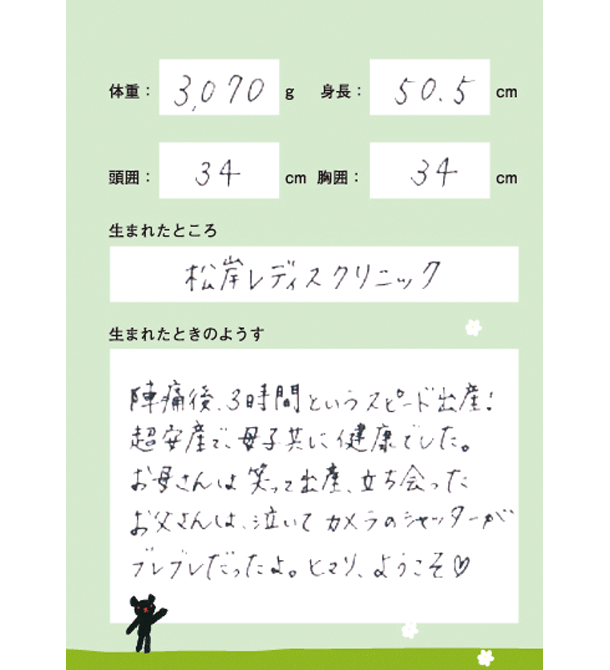 体重： 3,070 g 身長： 50.5 cm
頭囲： 34 cm 胸囲： 34 cm
生まれたところ
松岸レディスクリニック
生まれたときのようす
陣痛後、3時間というスピード出産！
超安産で、母子共に健康でした。
お母さんは笑って出産、立ち会った
お父さんは、泣いてカメラのシャッターが
ブレブレだったよ。ヒマリ、ようこそ♡